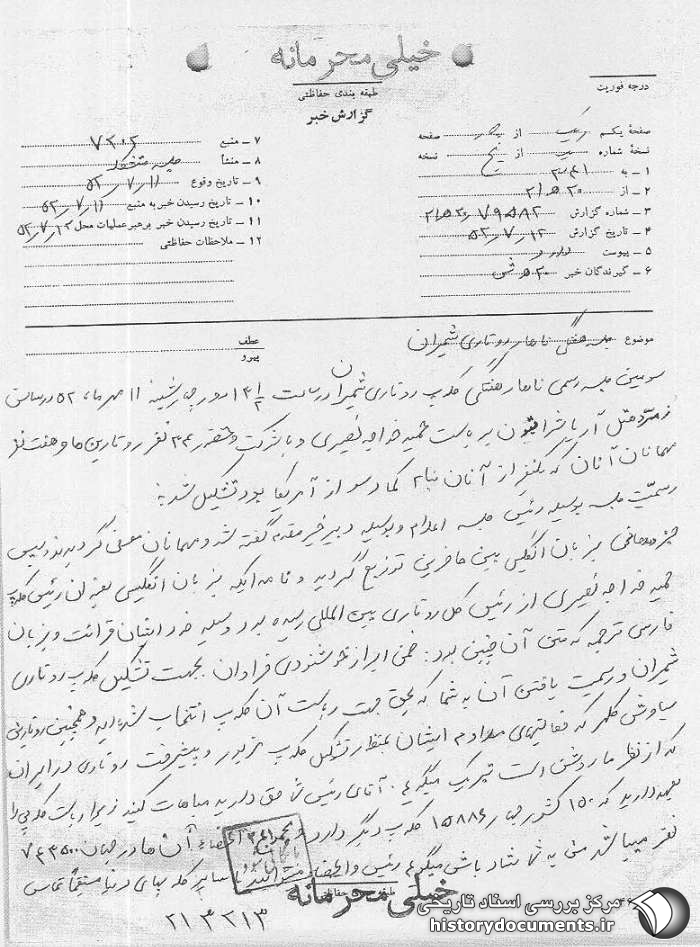 خیلی محرمانه
طبقه بندی حفاظتی
گزارش خبر
درجه فوریت
صفحه یکم از صفحه
نسخه شماره از پنج نسخه
۱ – به ۳۴۱
۲ – از ۲۰ ه ۲۱
۳ – شماره گزارش ۷۹۵۸۲ / ۲۰ ه ۲۱
۴ – تاریخ گزارش ۵۲٫۷٫۱۲
۵ – پیوست ندارد
۶ – گیرندگان خبر
۷ – منبع ۷۲۰۲
۸ – منشأ جلسه متشکله
۹ – تاریخ وقوع ۵۲٫۷٫۱۱
۱۰ – تاریخ رسیدن خبر به منبع ۵۲٫۷٫۱۱
۱۱ – تاریخ رسیدن خبر برهبر عملیات محل ۵۲٫۷٫۱۲
۱۲ – ملاحظات حفاظتی
موضوع جلسه هفتگی ناهار روتاری شمیران
عطف
پیرو
سومین جلسه رسمی ناهار هفتگی کلوپ روتاری شمیران در ساعت ۱۳ ۱/۲ روز چهارشنبه ۱۱ مهرماه ۵۲ در سالن
هتل آریا شراتون به ریاست حمید خواجه نصیری و با شرکت ۳۴ نفر روتارین ها و هفت نفر
مهمانان آنان که یکنفر از آنان از آمریکا بود تشکیل شد
رسمیت جلسه بوسیله رئیس جلسه اعلام و بوسیله دبیر خیر مقدم گفته شد و مهمانان معرفی گردیدند سپس
بزبان انگلیسی بین حاضرین توزیع گردید و نامه ایکه بزبان انگلیسی بعنوان رئیس کلوپ
حمید خواجه نصیری از رئیس کل روتاری بین المللی رسیده بود وسیله خود ایشان قرائت و بزبان
فارسی ترجمه که متن آن چنین بود: ضمن ابراز خوشنودی فراوان بجهت تشکیل کلوپ روتاری
شمیران و رسمیت یافتن آن به شما که بحق جهت ریاست آن کلوپ انتخاب شده اید و همچنین روتارین
سیاوش که فعالیتهای مداوم ایشان بمنظور تشکیل کلوپ مزبور و پیشرفت روتاری در ایران
که از نظر ما روشن است تبریک میگویم. آقای رئیس شما حق دارید مباهات کنید زیرا ریاست کلوپی را
بعهده دارید که ۱۵۰ کشور جهان ۱۵۸۸۶ کلوپ دیگر دارد و اعضاء آن ها در جهان ۷۴۳۵۰۰
نفر میباشد من به شما شادباش میگویم رئیس و اعضاء با سایر کلوپهای دنیا مستقیماً تماس
خیلی محرمانه
۲۱۳۲۱۳
مرکز بررسی اسناد تاریخی
historydocuments.ir